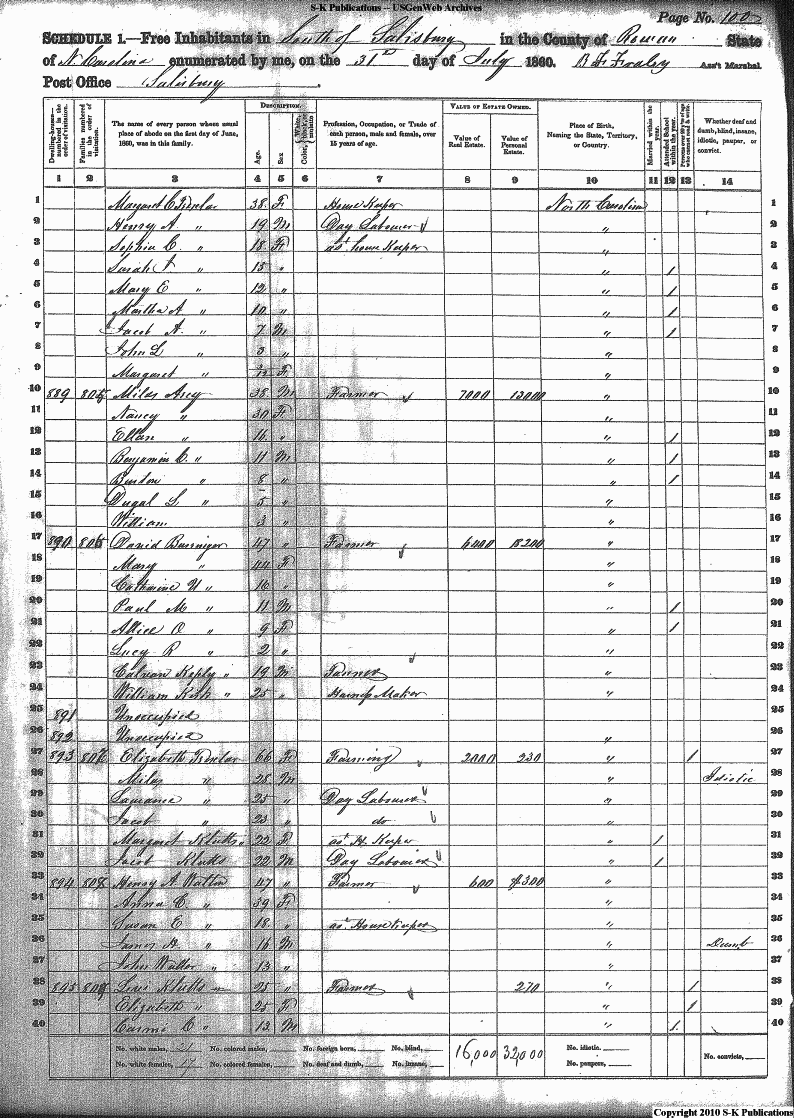 S-K Publications -- USGenWeb Archives
Page No. 100
SCHEDULE 1.—Free Inhabitants in South of Salisbury in the County of Rowan State
of N. Carolina enumerated by me, on the 31st day of July 1860. B F Fraley Ass't Marshal.
Post Office Salisbury
Dwelling-houses numbered in the order of visitation.
Families numbered in the order of visitation.
The name of every person whose usual place of abode on the first day of June, 1860, was in this family.
DESCRIPTION.
Age.
Sex
Color,
Profession, Occupation, or Trade of each person, male and female, over 15 years of age.
VALUE OF ESTATE OWNED.
Value of Real Estate.
Value of Personal Estate.
Place of Birth, Naming the State, Territory, or Country.
Married within the year.
Attended School within the year.
Persons over 20 y'rs of age who cannot read & write.
Whether deaf and dumb, blind, insane, idiotic, pauper, or convict.
1 2 3 4 5 6 7 8 9 10 11 12 13 14
1 Margaret C 38 F House Keeper North Carolina 1
2 Henry A " 19 M Day Labourer " 2
3 Sophia C " 18 F ast house Keeper " 3
4 Sarah " 15 " " / 4
5 Mary E " 12 " " / 5
6 Martha A " 10 " " / 6
7 Jacob A. " 7 M " / 7
8 John L " 3 " " 8
9 Margaret " F " 9
10 889 805 Miles Arey 38 M Farmer 7000 13000 " 10
11 Nancy " 30 F " 11
12 Ellan " 16 " " / 12
13 Benjamin C. " 11 M " / 13
14 Burton " 8 " " / 14
15 Dugal L " 5 " " 15
16 William 3 " " 16
17 890 806 David Barringer 47 " Farmer 6400 18200 " 17
18 Mary " 44 F " 18
19 Catharine U " 16 " " 19
20 Paul M " 11 M " / 20
21 Allice O " 9 F " / 21
22 Lucy R " 2 " " 22
23 Calvan Keply " 19 M Farmer " 23
24 William Kirk " 25 " Harness Maker " 24
25 891 Unoccupied 25
26 892 Unoccupied " 26
27 893 807 Elizabeth 66 F Farming 2000 230 " / 27
28 Miles " 28 M " Idiotic 28
29 " 25 " Day Labourer " 29
30 Jacob " 23 " do " 30
31 Margaret Klutts 22 F ast H. Keeper " / 31
32 Jacob Klutts 22 M Day Labourer " / 32
33 894 808 Henry A Walton 47 " Farmer 600 300 " 33
34 Anna C. " 39 F " 34
35 Susan E " 18 " ast House Keeper " 35
36 James H. " 16 M " Dumb 36
37 John Walter " 13 " " 37
38 895 809 Levi Klutts 25 " Farmer 270 " / 38
39 Elizabeth " 25 F " / 39
40 C " 12 M " / 40
No. white males, 21 No. colored males, No. foreign born, No. blind, 16,000 32,000 No. idiotic. No. convicts,
No. white females, 17 No. colored females, No. deaf and dumb, No. insane, No. paupers,
Copyright 2010 S-K Publications